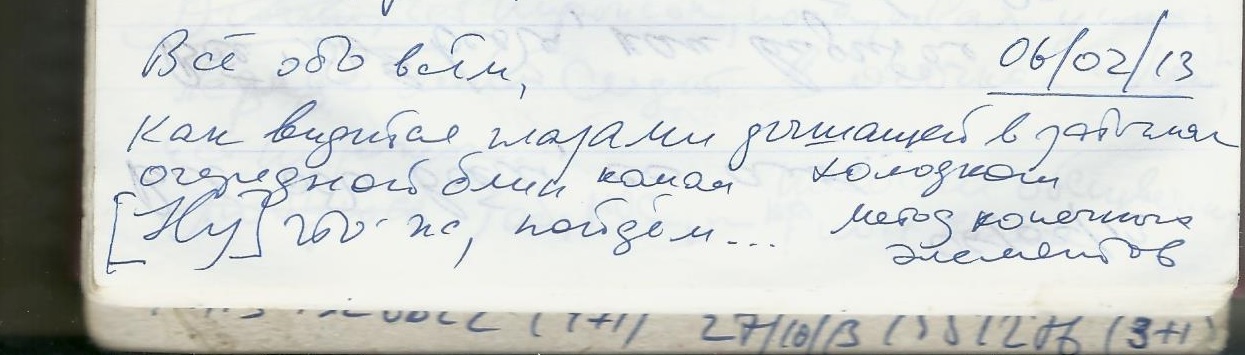 Всё обо всём,
06/02/13
Как видится глазами дышащей в затылок
очередной блин комам холодком
[Ну] что ж, пойдём... метод конечных
элементов
27/10/13